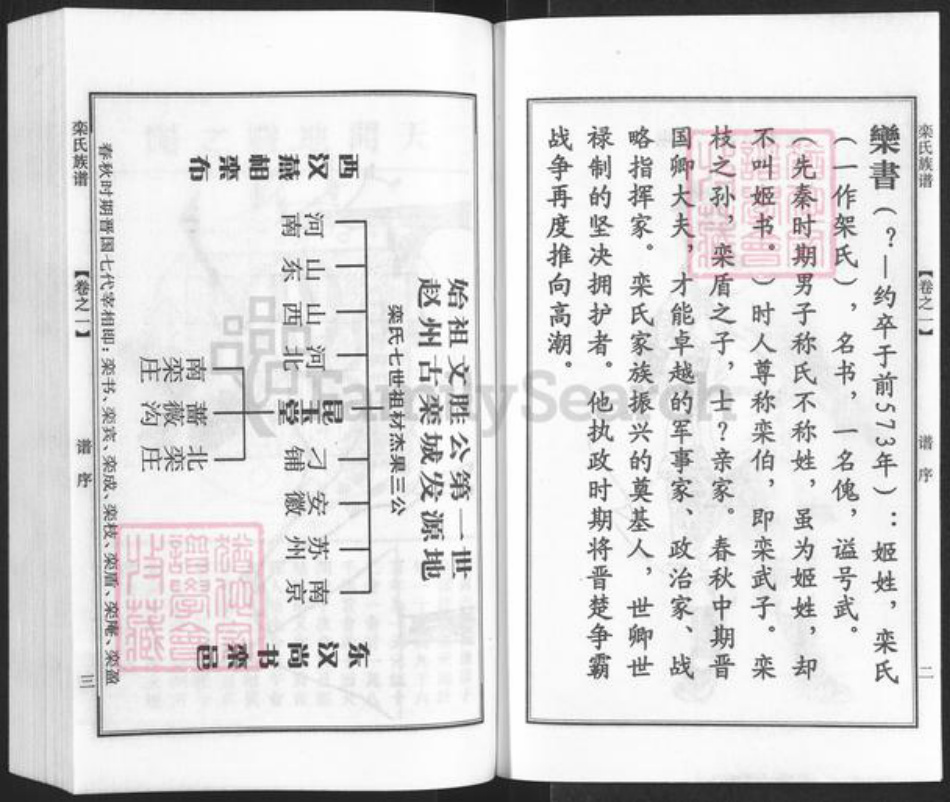 栾氏族谱
【卷之一】
谱序
二
欒書（？—约卒于前573年）：姬姓，栾氏
（一作架氏），名书，一名傀，谥号武。
（先秦时期男子称氏不称姓，虽为姬姓，却
不叫姬书。）时人尊称栾伯，即栾武子。栾
枝之孙，栾盾之子，士？亲家。春秋中期晋
国卿大夫，才能卓越的军事家、政治家、战
略指挥家。栾氏家族振兴的奠基人，世卿世
禄制的坚决拥护者。他执政时期将晋楚争霸
战争再度推向高潮。
始祖文胜公第一世
赵州古栾城发源地
栾氏七世祖材杰果三公
西汉燕相栾布
河南
山东
山西
河北
昆玉堂
刁铺
安徽
苏州
南京
东汉尚书栾邑
南栾庄
蔷薇沟
北栾庄
春秋时期晋国七代宰相即：栾书、栾宾、栾成、栾枝、栾盾、栾黡、栾盈
栾氏族谱
【卷之一】
谱序
三
FamilySearch